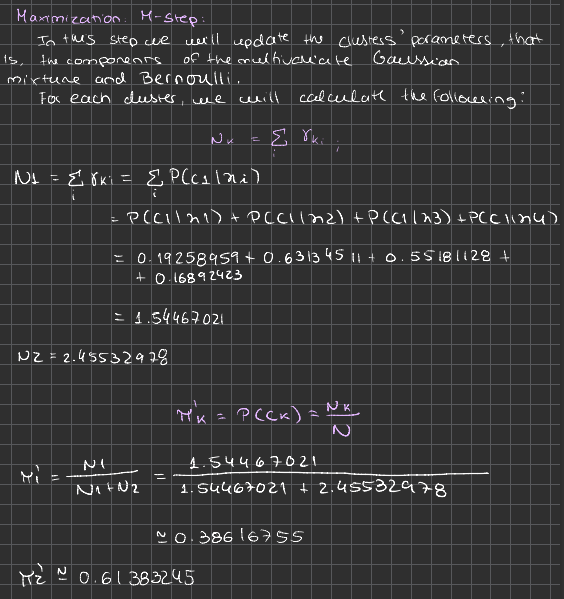 Maximization: M-step:
In this step we will update the clusters' parameters, that
is, the components of the multivariate Gaussian
mixture and Bernoulli.
For each cluster, we will calculate the following:
Nk = ∑i γki ;
N1 = ∑i γki = ∑i P(c1|xi)
= P(c1|x1) + P(c1|x2) + P(c1|x3) + P(c1|x4)
= 0.19258959 + 0.63134511 + 0.55181128 +
+ 0.16892423
= 1.54467021
N2 = 2.45532978
π'k = P(Ck) = Nk / N
π1' = N1 / (N1 + N2) = 1.54467021 / (1.54467021 + 2.45532978)
≃ 0.38616755
π2' ≃ 0.61383245